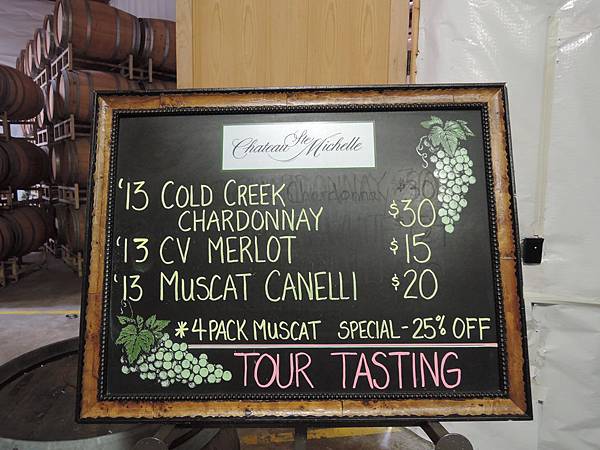 Chateau Ste Michelle
'13 COLD CREEK
CHARDONNAY $30
'13 CV MERLOT $15
'13 MUSCAT CANELLI $20
*4 PACK MUSCAT SPECIAL - 25% OFF
TOUR TASTING